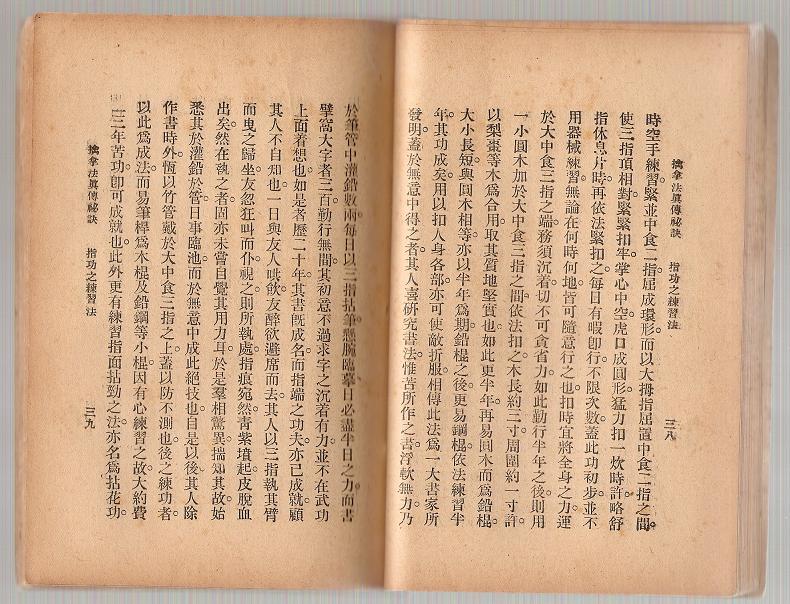 擒拿法眞傳祕訣　指功之練習法　三八
時空手練習緊並中食二指屈成環形而以大拇指屈置中食二指之間。
使三指頂相對緊緊扣牢掌心中空虎口成圓形猛力扣一炊時許略舒
指休息片時再依法緊扣之每日有暇卽行不限次數蓋此功初步並不
用器械練習無論在何時何地皆可隨意行之也扣時宜將全身之力運
於大中食三指之端務須沉着切不可貪省力如此勤行半年之後則用
一小圓木加於大中食三指之間依法扣之木長約三寸周圍約一寸許
以梨棗等木爲合用取其質地堅實也如此更半年再易圓木而爲鉛棍。
大小長短與圓木相等亦以半年爲期鉛棍之後更易鋼棍依法練習半
年其功成矣用以扣人身各部亦可使敵折服相傳此法爲一大書家所
發明蓋於無意中得之者其人喜硏究書法惟苦所作之書浮軟無力乃
於筆管中灌鉛數兩每日以三指拈筆懸腕臨摹日必盡半日之力而書
擘窩大字者三百勤行無間其初意不過求字之沉着有力並不在武功
上面着想也如是者歷二十年其書旣成名而指端之功夫亦已成就顧
其人不自知也一日與友人哄飲友醉欲避席而去其人以三指執其臂
而曳之歸坐友忽狂叫而仆視之則所執處指痕宛然靑紫墳起皮脫血
出矣然在執之者固亦未嘗自覺其用力耳於是羣相驚異揣知其故始
悉其於灌鉛於管日事臨池而於無意中成此絕技也自是以後其人除
作書時外恆以竹管戴於大中食三指之上蓋以防不測也後之練功者。
以此爲成法而易筆桿爲木棍及鉛鋼等小棍因有心練習之故大約費
三年苦功卽可成就也此外更有練習指面拈勁之法亦名爲拈花功。
擒拿法眞傳祕訣　指功之練習法　三九